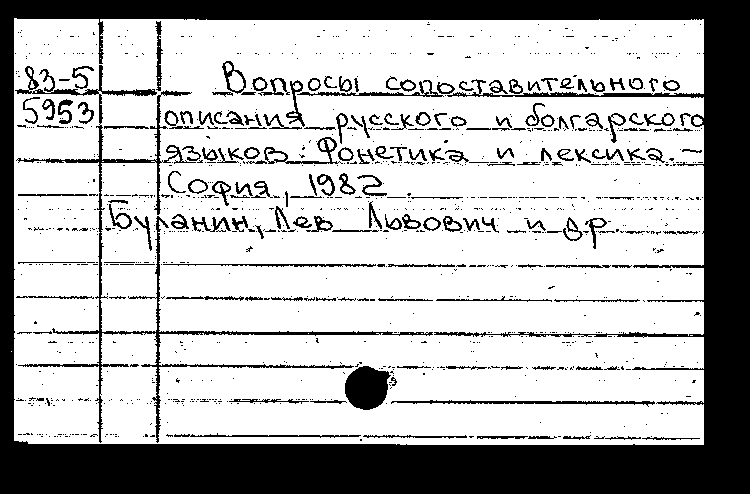 83-5 Вопросы сопоставительного
5953 описания русского и болгарского
языков: Фонетика и лексика. –
София, 1982.
Буланин, Лев Львович и др.